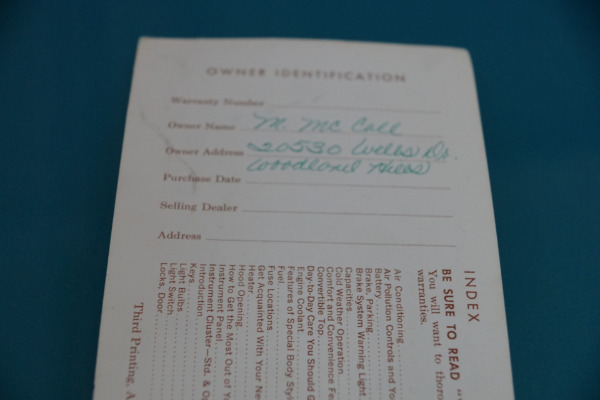 OWNER IDENTIFICATION
Warranty Number
Owner Name M. Mc Call
Owner Address 20530 Wells Dr.
Woodland Hills
Purchase Date
Selling Dealer
Address
INDEX
BE SURE TO READ
You will want to
warranties.
Air Conditioning
Air Pollution Controls and
Battery
Brake, Parking
Brake System Warning Light
Capacities
Cold Weather Operation
Comfort and Convenience
Convertible Top
Day-to-Day Care You Should
Engine Coolant
Features of Special Body
Fuel
Fuse Locations
Get Acquainted With Your
Heater
Hood Opening
How to Get the Most Out of
Instrument Panel
Instrument Cluster—Std. &
Introduction
Keys
Light Bulbs
Light Switch
Locks, Door
Third Printing,